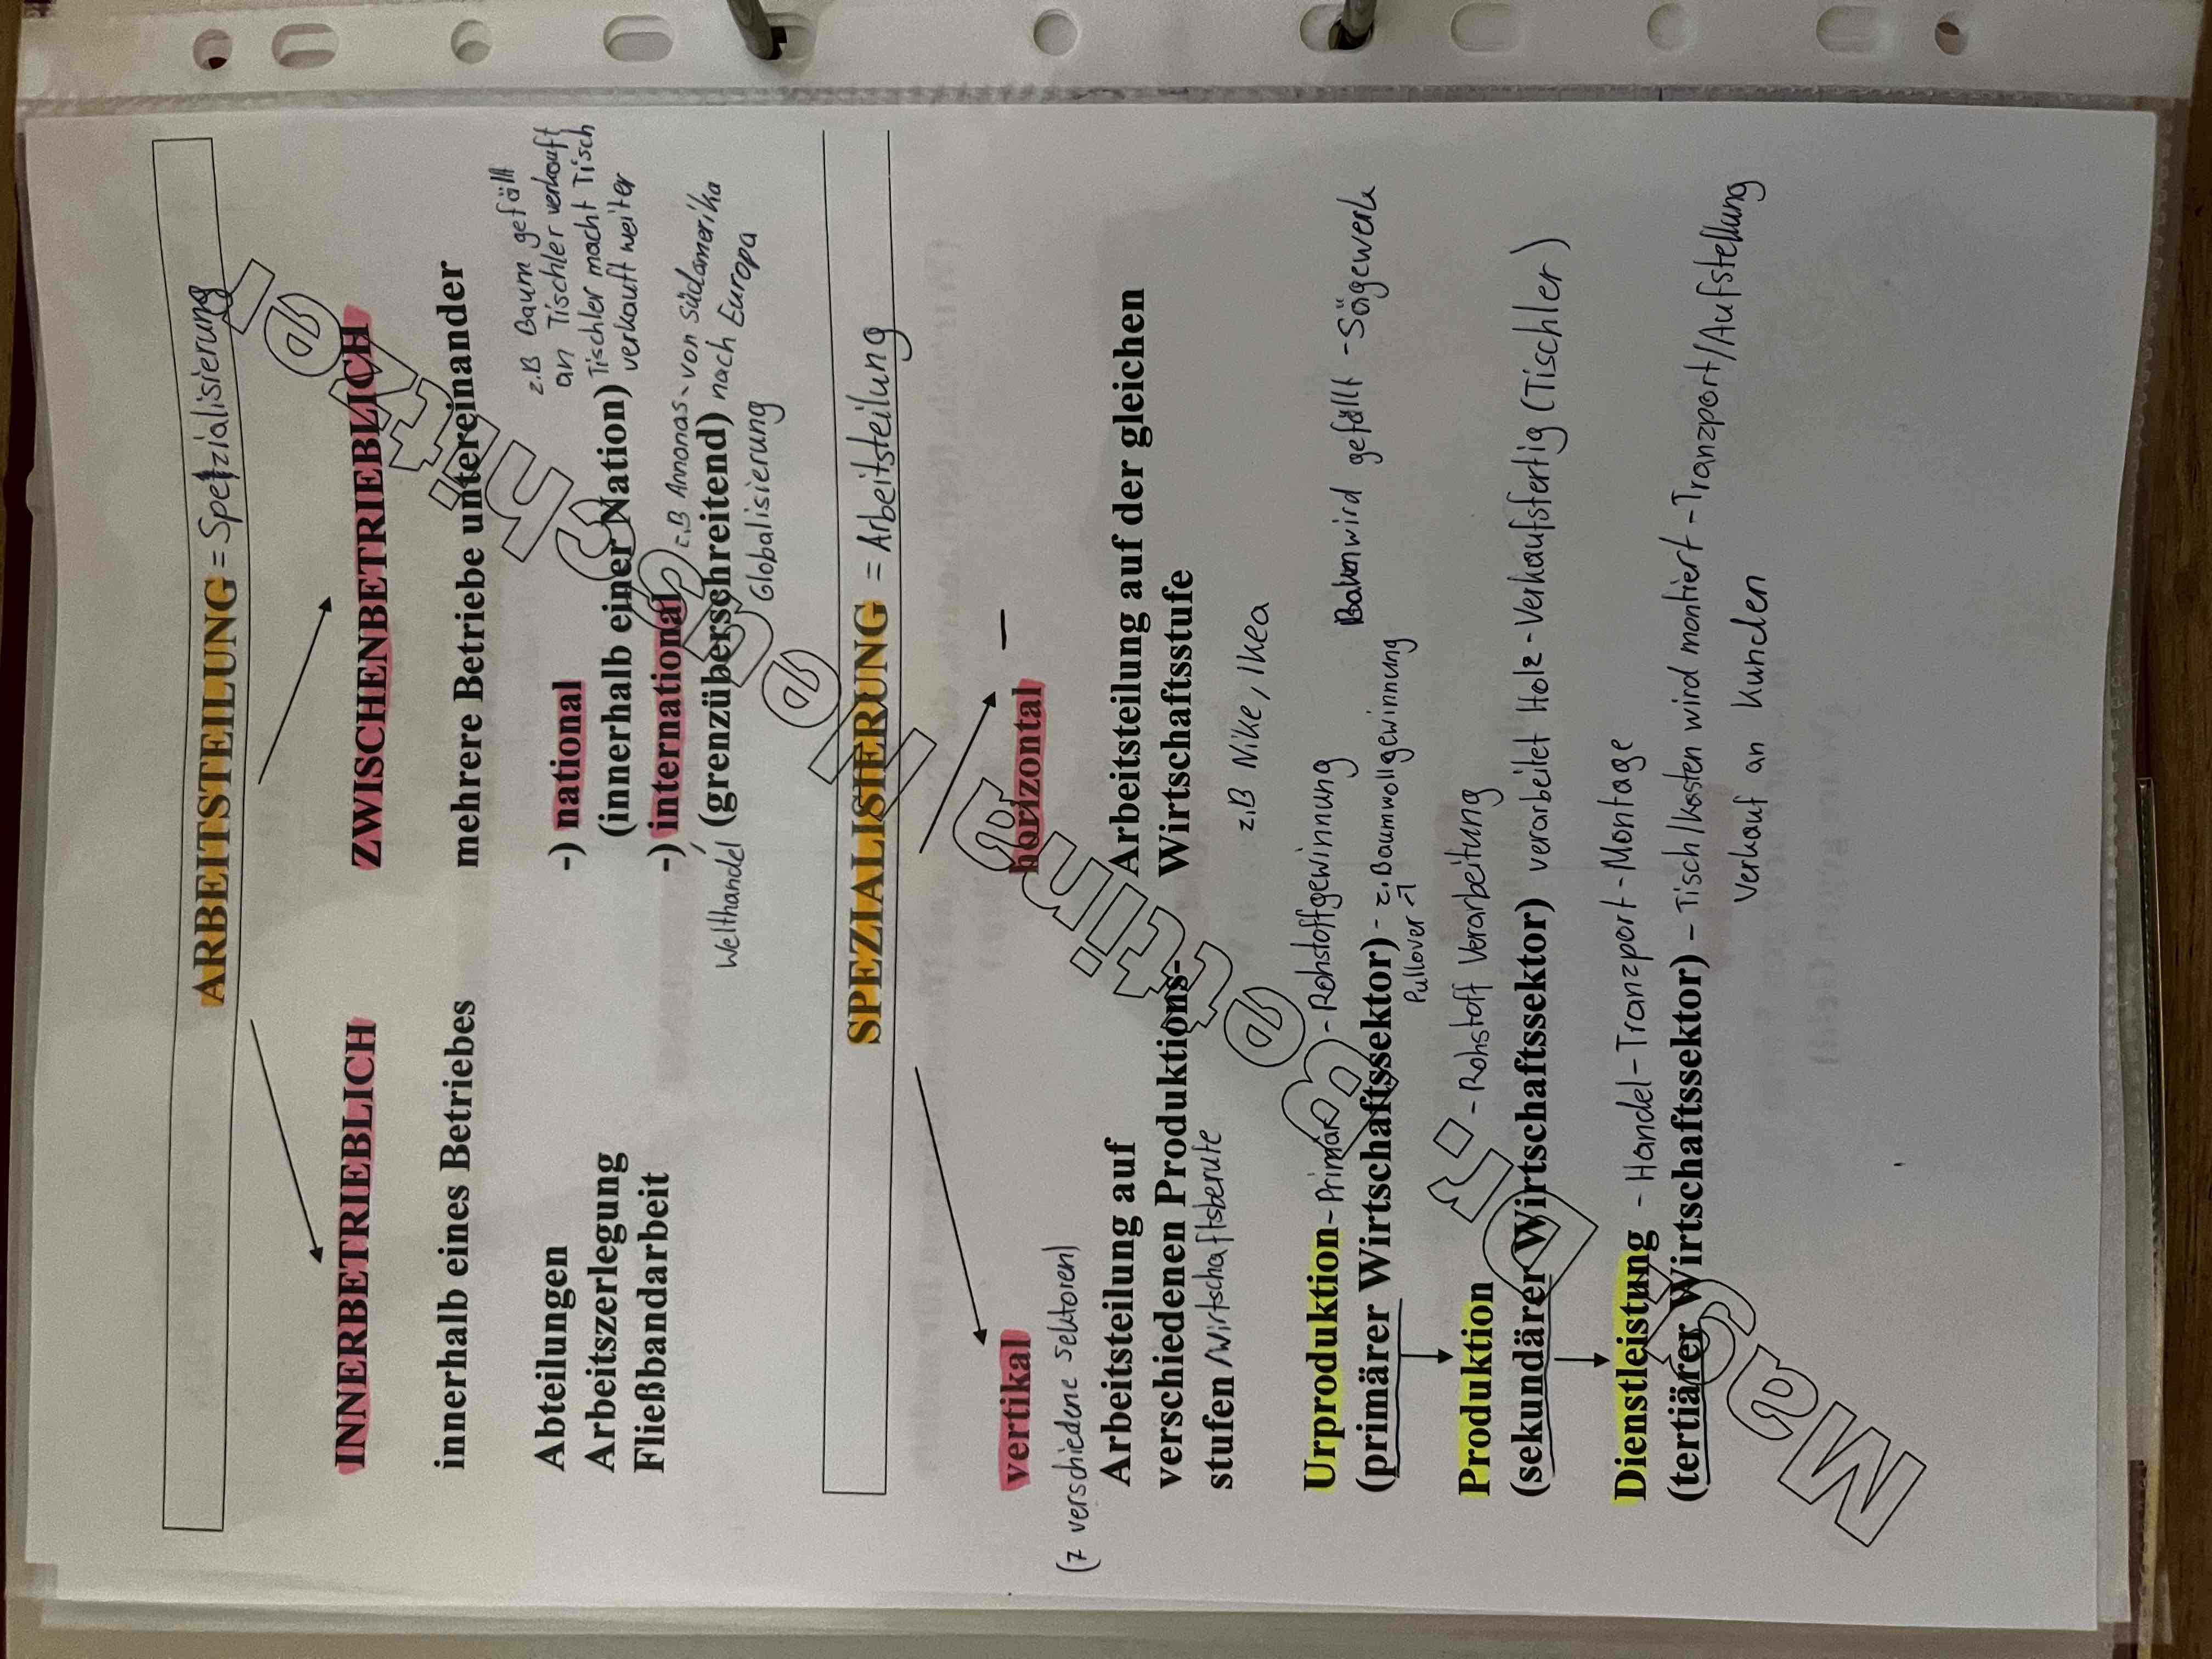 ARBEITSTEILUNG = Spetzialisierung
INNERBETRIEBLICH
innerhalb eines Betriebes
Abteilungen
Arbeitszerlegung
Fließbandarbeit
ZWISCHENBETRIEBLICH
mehrere Betriebe untereinander
-) national
(innerhalb einer Nation)
z.B Baum gefällt
an Tischler verkauft
Tischler macht Tisch
verkauft weiter
-) international
z.B Annonas - von Südamerika
Welthandel (grenzüberschreitend) nach Europa
Globalisierung
SPEZIALISIERUNG = Arbeitsteilung
vertikal
(7 verschiedene Sektoren)
Arbeitsteilung auf
verschiedenen Produktions-
stufen /Wirtschaftsberufe
horizontal
Arbeitsteilung auf der gleichen
Wirtschaftsstufe
z.B Nike, Ikea
Urproduktion - Primär - Rohstoffgewinnung
(primärer Wirtschaftssektor) - z. Baumwollgewinnung
Pullover
wird gefällt - Sägewerk
Produktion - Rohstoff Verarbeitung
(sekundärer Wirtschaftssektor) verarbeitet Holz - Verkaufsfertig (Tischler)
Dienstleistung - Handel - Tranzport - Montage
(tertiärer Wirtschaftssektor) - Tisch/Kasten wird montiert - Tranzport/Aufstellung
Verkauf an Kunden
Mag. Dr. Bettina Neuschitzer